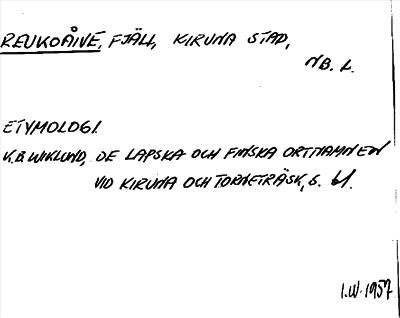 REUKOÅIVE, FJÄLL, KIRUNA STAD,
NB. L.
ETYMOLOGI.
K.B. WIKLUND, DE LAPSKA OCH FINSKA ORTNAMNEN
VID KIRUNA OCH TORNETRÄSK, S. 61.
I.W. 1957